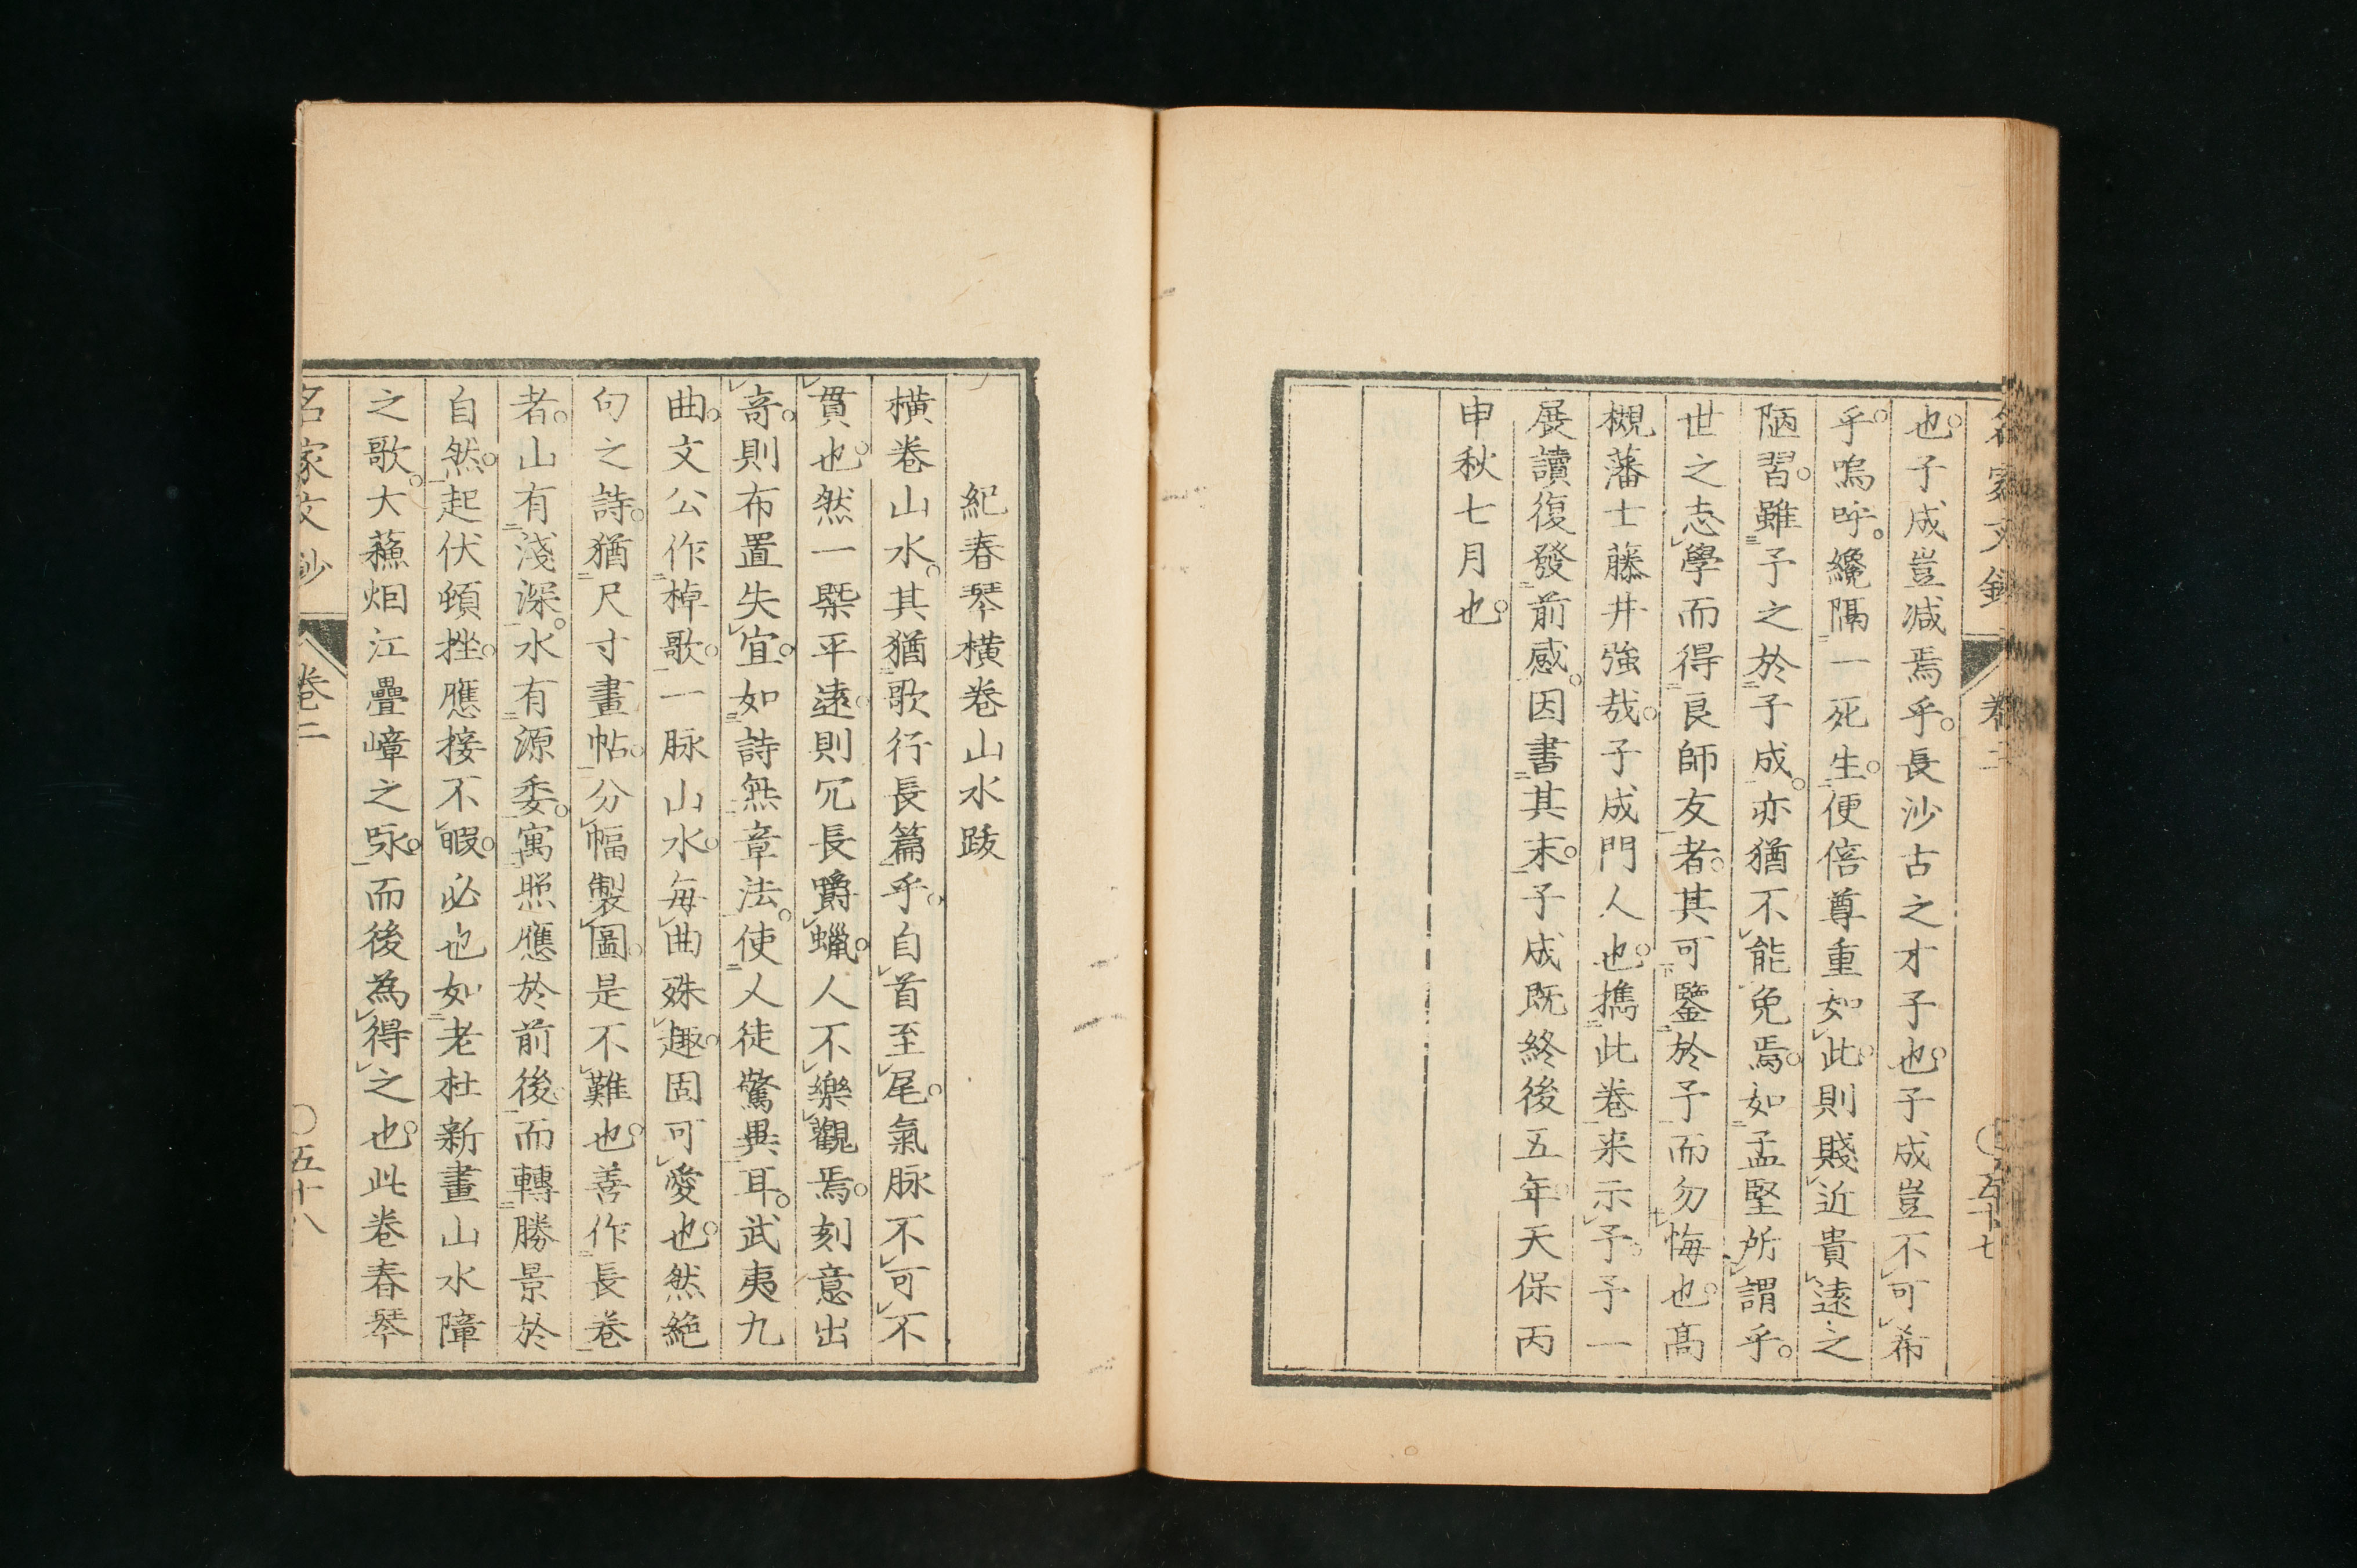 也。子成豈減焉乎。長沙古之才子也。子成豈不可希
乎。嗚呼。纔隔一死生。便倍尊重如此。則賤近貴遠之
陋習。雖予之於子成。亦猶不能免焉。如孟堅所謂乎。
世之志學而得良師友者。其可鑒於予而勿悔也。高
槻藩士藤井強哉。子成門人也。攜此卷来示予。予一
展讀復發前感。因書其末。子成既終後五年天保丙
申秋七月也。
五十七
紀春琴横卷山水跋
横卷山水。其猶歌行長篇乎。自首至尾。氣脉不可不
貫也。然一槩平遠。則冗長嚼蠟。人不樂觀焉。刻意出
奇。則布置失宜。如詩無章法。使人徒驚異耳。武夷九
曲。文公作棹歌。一脉山水。每曲殊趣。固可愛也。然絶
句之詩。猶尺寸畫帖。分幅製圖。是不難也。善作長卷
者。山有淺深。水有源委。寓照應於前後。而轉勝景於
自然。起伏頓挫。應接不暇。必也如老杜新畫山水障
之歌。大蘓烟江疊嶂之咏。而後為得之也。此卷春琴
名家文抄
卷二
五十八